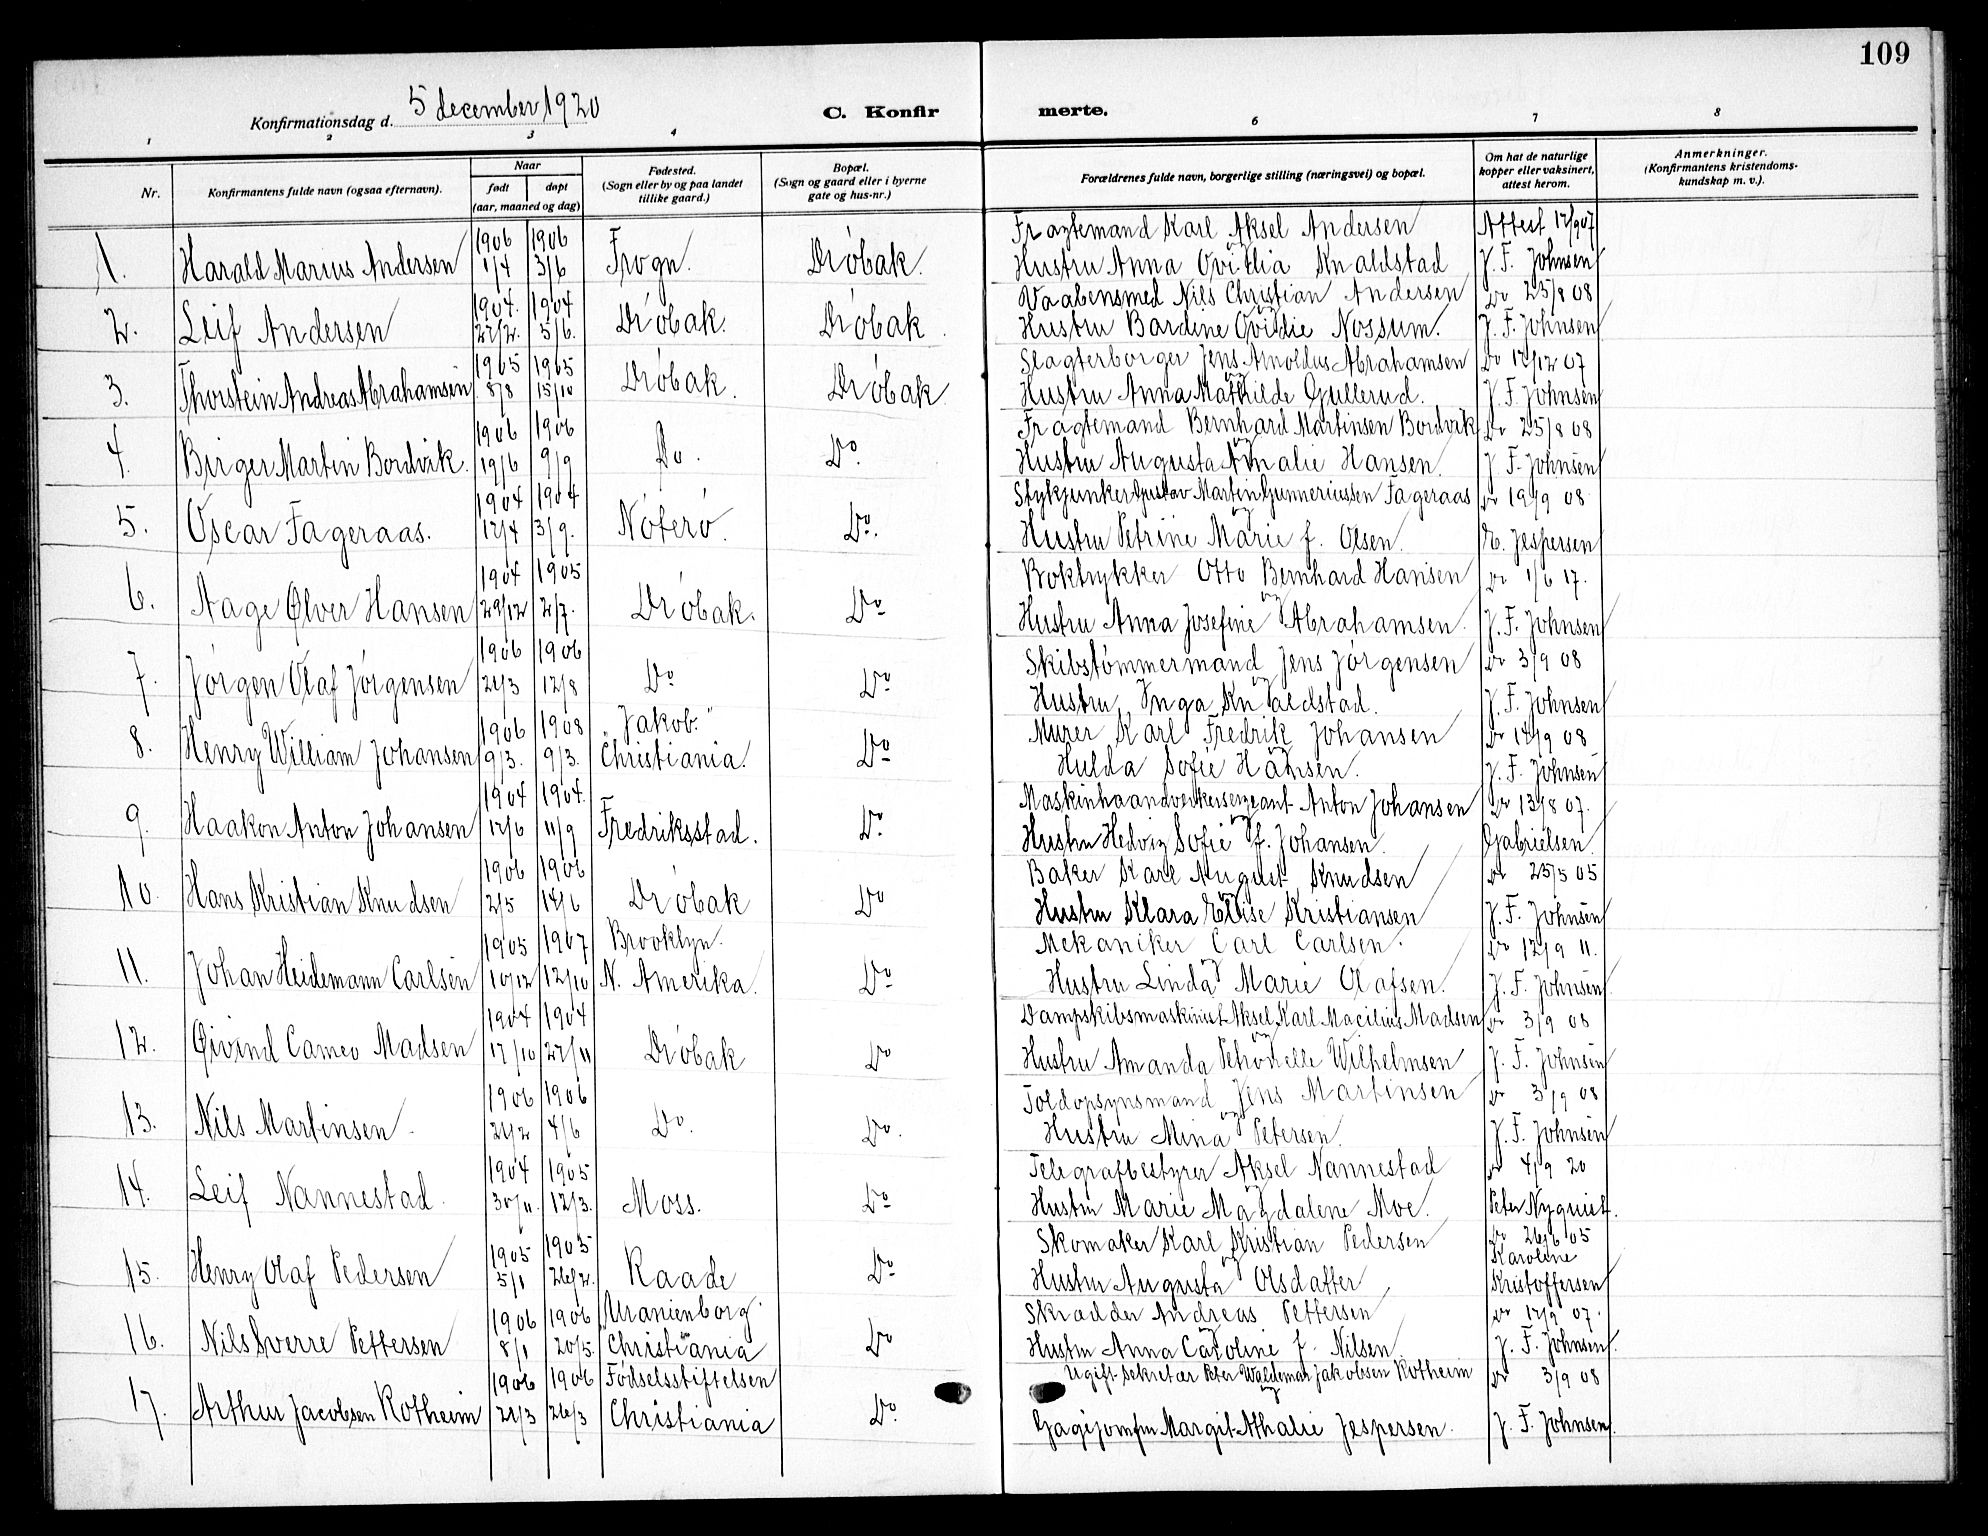 109
Konfirmationsdag d. 5 december 1920
C. Konfirmerte.
1 2 3 4 6 7 8
Nr. Konfirmantens fulde navn (ogsaa efternavn). Naar født døpt (aar, maaned og dag) Fødested. (Sogn eller by og paa landet tillike gaard.) Bopæl. (Sogn og gaard eller i byerne gate og hus-nr.) Forældrenes fulde navn, borgerlige stilling (næringsvei) og bopæl. Om hat de naturlige kopper eller vaksinert, attest herom. Anmerkninger. (Konfirmantens kristendomskundskap m. v.).
1906 1906 Fragtemand Karl Aksel Andersen Attest 12/9 07
1. Harald Marius Andersen 1/4 3/6 Frogn. Dröbak. og Hustru Anna Ovidia Knaldstad J. F. Johnsen
1904. 1904 Vaabensmed Nils Christian Andersen Do 25/8 08
2. Leif Andersen 5/6. Dröbak. Dröbak. og Hustru Bardine Ovidie Nossum. J. F. Johnsen
1905 1905 Slagterborger Jens Arnoldus Abrahamsen Do 07
3. Thorstein Andreas Abrahamsen 8/8 15/10 Dröbak. Dröbak og Hustru Anna Mathilde Gullerud. J. F. Johnsen
1906 1906 Fragtemand Bernhard Martinsen Bordvik Do 25/8 08
4. Birger Martin Bordvik. 19/6 9/9 Do. Do. og Hustru Augusta Amalie Hansen. J. F. Johnsen
1904 1904 Stykjunker Gustav Martin Gunneriussen Fageraas Do 19/9 08
5. Oscar Fageraas. 12/4 3/9. Nöterö. Do. og Hustru Petrine Marie f. Olsen. Jespersen
1904 1905 Boktrykker Otto Bernhard Hansen Do 1/6 17.
6. Aage Ølver Hansen 29/12 2/7. Dröbak. Do og Hustru Anna Josefine Abrahamsen. J. F. Johnsen
1906 1906 Skibstömmermand Jens Jörgensen Do 3/9 08
7. Jörgen Olaf Jörgensen 21/3 12/8 Do Do og Hustru Inga Knaldstad. J. F. Johnsen
1906 1908 "Jakob." Murer Karl Fredrik Johansen Do 14/9 08
8. Henry William Johansen 9/3. 9/3. Christiania. Do og Hulda Sofie Hansen. J. F. Johnsen
1904 1904. Maskinhaandverkersergeant Anton Johansen Do 13/8 07.
9. Haakon Anton Johansen 12/6 11/9 Fredriksstad. Do. og Hustru Hedvig Sofie f. Johansen. Gabrielsen.
1906 1906 Baker Karl August Knudsen Do 25/5 05
10. Hans Kristian Knudsen 2/5 14/6 Dröbak Do og Hustru Klara Elise Kristiansen J. F. Johnsen
1905 1907 Brooklyn. Mekaniker Carl Carlsen. Do 12/9 11.
11. Johan Heidemann Carlsen 10/12 12/10 N. Amerika. Do og Hustru Linda Marie Olafsen. J. F. Johnsen
1904 1904 Dampskibsmaskinist Aksel Karl Macilius Madsen Do 3/9 08
12. Øivind Cameo Madsen 17/10 27/11 Dröbak Do og Hustru Amanda Petronelle Wilhelmsen J. F. Johnsen
1906 1906 Toldopsynsmand Jens Martinsen Do 3/9 08
13. Nils Martinsen 21/2 4/6 Do. Do. og Hustru Mina Petersen. J. F. Johnsen
1904 1905 Telegrafbestyrer Aksel Nannestad Do 4/9 20
14. Leif Nannestad. 30/11. 12/3. Moss. Do og Hustru Marie Magdalene Moe. Peter Nyquist.
1905 1905 Skomaker Karl Kristian Pedersen Do 26/6 05
15. Henry Olaf Pedersen 5/1 26/2. Raade Do og Hustru Augusta Olsdatter Karoline Kristoffersen
1906 1906 Uranienborg. Skrædder Andreas Pettersen Do 12/9 07.
16. Nils Sverre Pettersen 8/1 20/5. Christiania Do og Hustru Anna Caroline f. Nilsen. J. F. Johnsen.
1906 1906 Födselsstiftelsen Ugift Sekretær Peter Waldemar Jakobsen Rotheim Do 3/9 08
17. Arthur Jacobsen Rotheim 21/3 26/3 Christiania Do. og Margit Athalie Jespersen. J. F. Johnsen.